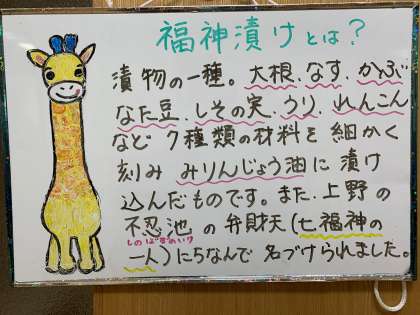 福神漬けとは？
漬物の一種。大根、なす、かぶ
なた豆、しその実、うり、れんこん
など7種類の材料を細かく
刻みみりんじょう油に漬け
込んだものです。また、上野の
不忍池の弁財天(七福神の
しのばずのいけ
一人)にちなんで名づけられました。